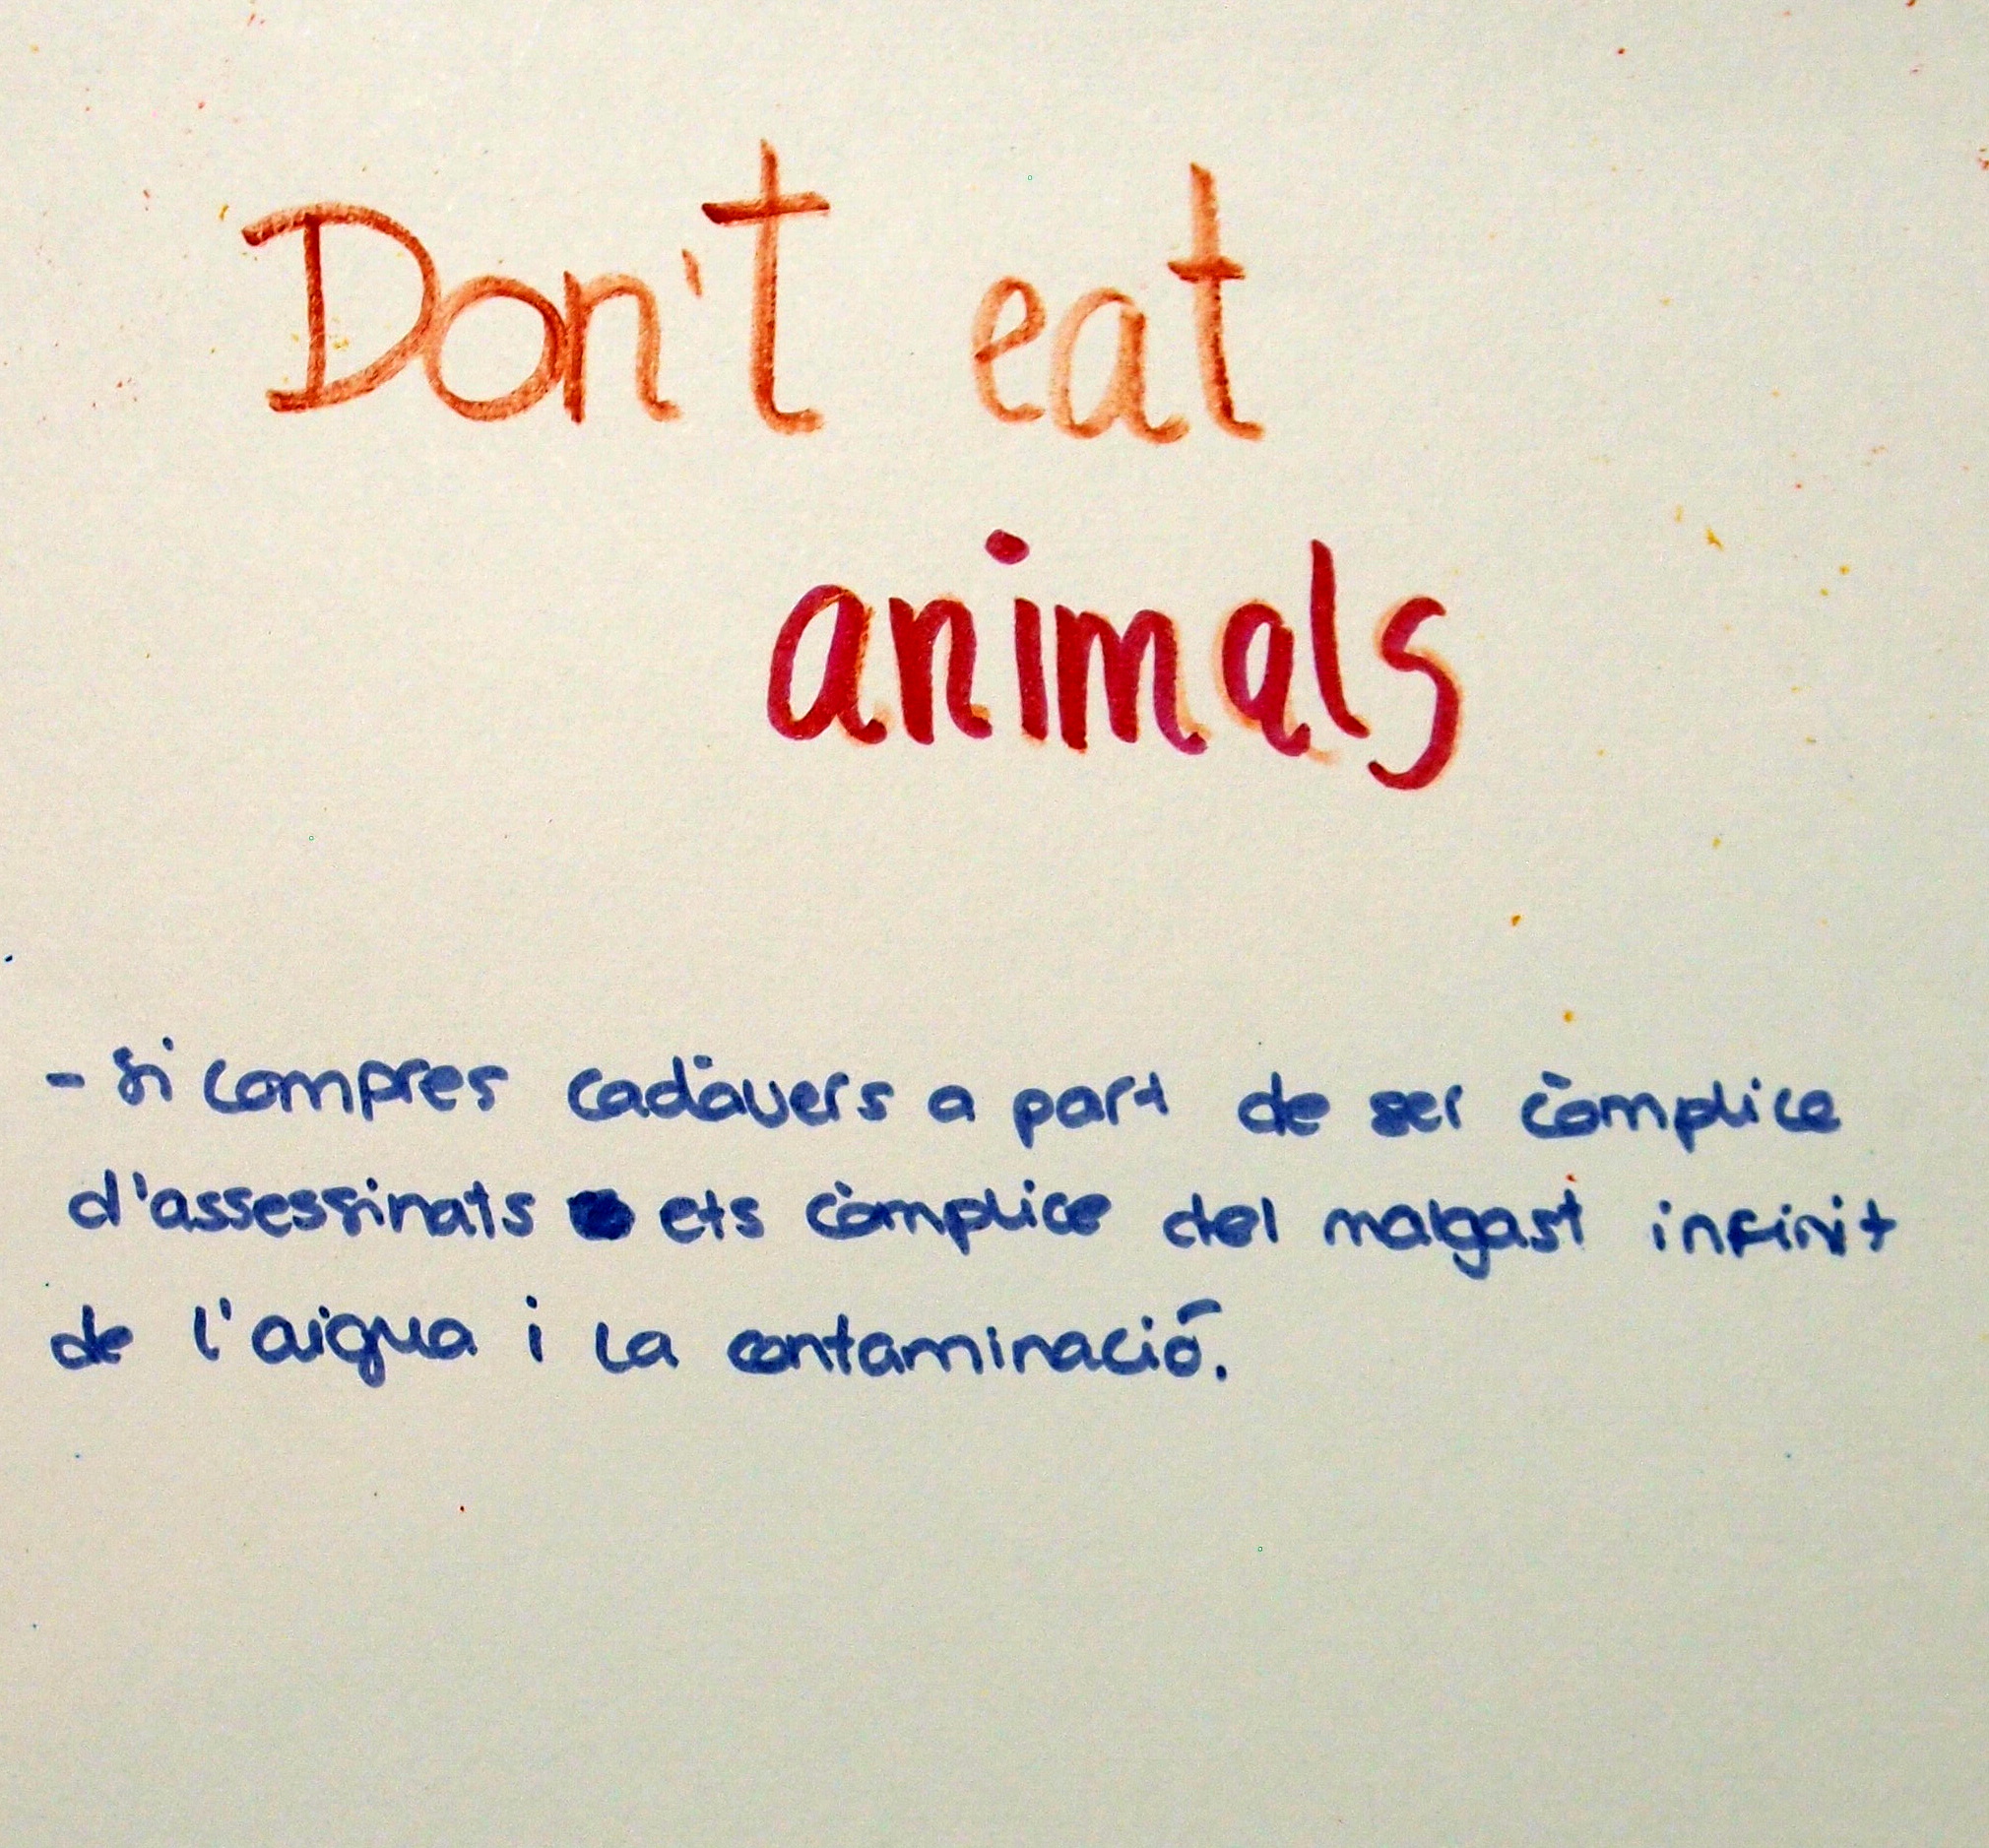 Don't eat
animals
- si compres cadàvers a part de ser còmplice
d'assessinats ets còmplice del malgast infinit
de l'aigua i la contaminació.